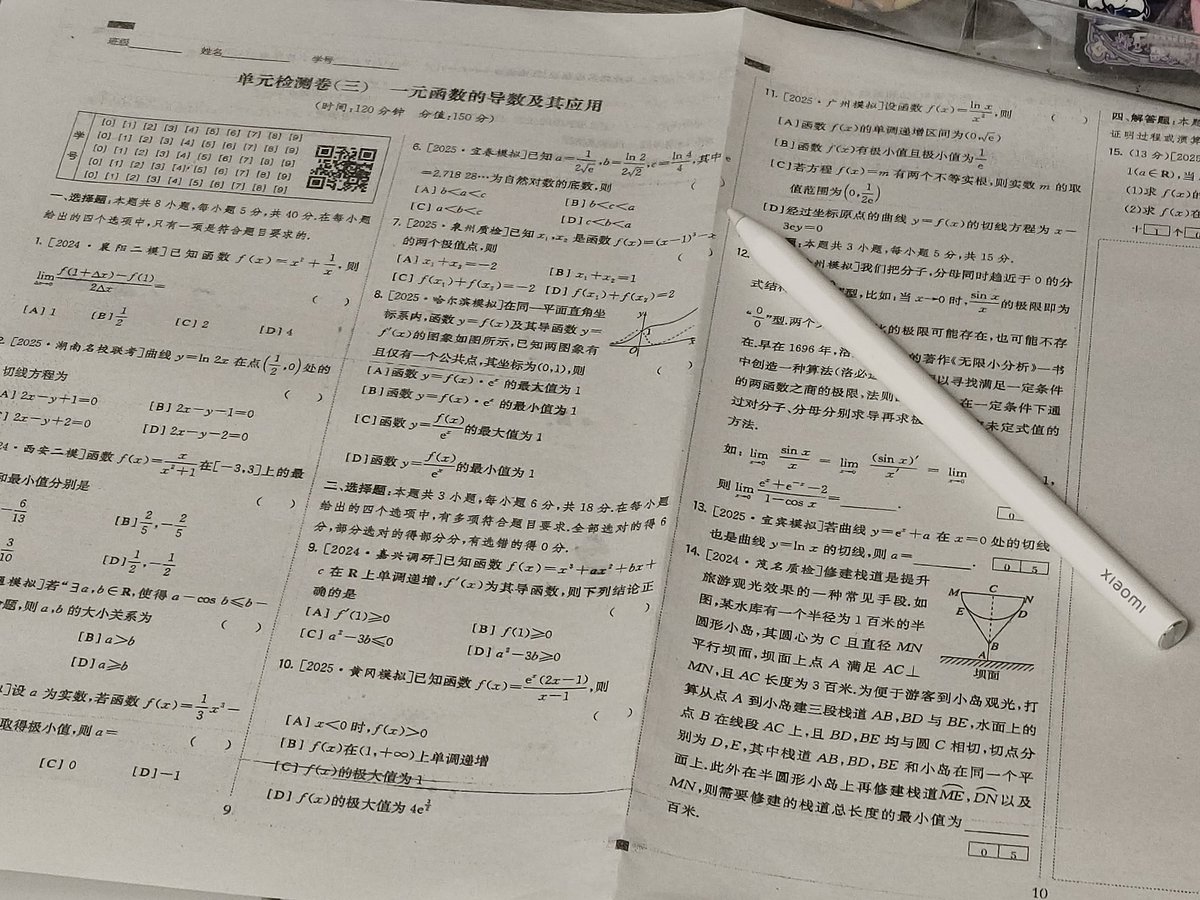 班级 姓名 学号
单元检测卷(三) 一元函数的导数及其应用
(时间:120分钟 分值:150分)
学号
[0] [1] [2] [3] [4] [5] [6] [7] [8] [9]
[0] [1] [2] [3] [4] [5] [6] [7] [8] [9]
[0] [1] [2] [3] [4] [5] [6] [7] [8] [9]
[0] [1] [2] [3] [4] [5] [6] [7] [8] [9]
[0] [1] [2] [3] [4] [5] [6] [7] [8] [9]
一、选择题:本题共8小题,每小题5分,共40分.在每小题
给出的四个选项中,只有一项是符合题目要求的.
1. [2024·襄阳二模]已知函数 f(x)=x²+1/x,则
lim Δx→0 (f(1+Δx)-f(1))/(2Δx)= ( )
[A] 1 [B] 1/2 [C] 2 [D] 4
2. [2025·湖南名校联考]曲线 y=ln 2x 在点(1/2,0)处的
切线方程为 ( )
[A] 2x-y+1=0 [B] 2x-y-1=0
[C] 2x-y+2=0 [D] 2x-y-2=0
24·西安二模]函数 f(x)=x/(x²+1)在[-3,3]上的最
和最小值分别是 ( )
-6/13 [B] 2/5,-2/5
3/10 [D] 1/2,-1/2
模拟]若“∃a,b∈R,使得 a-cos b≤b-
题,则 a,b 的大小关系为 ( )
[B] a>b
[D] a≥b
]设 a 为实数,若函数 f(x)=1/3x³-
取得极小值,则 a= ( )
[C] 0 [D] -1
9
6. [2025·宜春模拟]已知 a=1/(2√e),b=ln 2/(2√2),c=ln 4/4,其中 e
=2.718 28…为自然对数的底数,则 ( )
[A] b<a<c [B] b<c<a
[C] a<b<c [D] c<b<a
7. [2025·泉州质检]已知 x₁,x₂ 是函数 f(x)=(x-1)³-x
的两个极值点,则 ( )
[A] x₁+x₂=-2 [B] x₁+x₂=1
[C] f(x₁)+f(x₂)=-2 [D] f(x₁)+f(x₂)=2
8. [2025·哈尔滨模拟]在同一平面直角坐
标系内,函数 y=f(x)及其导函数 y=
f′(x)的图象如图所示,已知两图象有
且仅有一个公共点,其坐标为(0,1),则 ( )
y 1 O x
[A] 函数 y=f(x)·eˣ 的最大值为1
[B] 函数 y=f(x)·eˣ 的最小值为1
[C] 函数 y=f(x)/eˣ 的最大值为1
[D] 函数 y=f(x)/eˣ 的最小值为1
二、选择题:本题共3小题,每小题6分,共18分.在每小题
给出的四个选项中,有多项符合题目要求.全部选对的得6
分,部分选对的得部分分,有选错的得0分.
9. [2024·嘉兴调研]已知函数 f(x)=x³+ax²+bx+
c 在 R 上单调递增,f′(x)为其导函数,则下列结论正
确的是 ( )
[A] f′(1)≥0 [B] f(1)≥0
[C] a²-3b≤0 [D] a²-3b≥0
10. [2025·黄冈模拟]已知函数 f(x)=eˣ(2x-1)/(x-1),则
( )
[A] x<0时,f(x)>0
[B] f(x)在(1,+∞)上单调递增
[C] f(x)的极大值为1
[D] f(x)的极大值为 4e^(3/2)
11. [2025·广州模拟]设函数 f(x)=ln x/x²,则 ( )
[A] 函数 f(x)的单调递增区间为(0,√e)
[B] 函数 f(x)有极小值且极小值为 1/e
[C] 若方程 f(x)=m 有两个不等实根,则实数 m 的取
值范围为(0,1/(2e))
[D] 经过坐标原点的曲线 y=f(x)的切线方程为 x-
3ey=0
题:本题共3小题,每小题5分,共15分.
12. 州模拟]我们把分子,分母同时趋近于0的分
式结 型,比如:当 x→0时,sin x/x的极限即为
“0/0”型.两个 的极限可能存在,也可能不存
在.早在1696年,洛 的著作《无限小分析》一书
中创造一种算法(洛必 以寻找满足一定条件
的两函数之商的极限,法则 在一定条件下通
过对分子、分母分别求导再求极 未定式值的
方法.
如:lim x→0 sin x/x = lim x→0 (sin x)′/x′ = lim x→0 1,
则 lim x→0 (eˣ+e⁻ˣ-2)/(1-cos x)= .
0
13. [2025·宜宾模拟]若曲线 y=eˣ+a 在 x=0处的切线
也是曲线 y=ln x 的切线,则 a= .
0 5
14. [2024·茂名质检]修建栈道是提升
旅游观光效果的一种常见手段.如
图,某水库有一个半径为1百米的半
圆形小岛,其圆心为 C 且直径 MN
平行坝面,坝面上点 A 满足 AC⊥
M C N E D B A 坝面
MN,且 AC 长度为3百米.为便于游客到小岛观光,打
算从点 A 到小岛建三段栈道 AB,BD 与 BE,水面上的
点 B 在线段 AC 上,且 BD,BE 均与圆 C 相切,切点分
别为 D,E,其中栈道 AB,BD,BE 和小岛在同一个平
面上.此外在半圆形小岛上再修建栈道 ME,DN 以及
MN,则需要修建的栈道总长度的最小值为
百米.
0 5
10
四、解答题:本题
证明过程或演算
15. (13分)[2025
1(a∈R),当
(1)求 f(x)的
(2)求 f(x)在
十 1 个 0
xiaomi